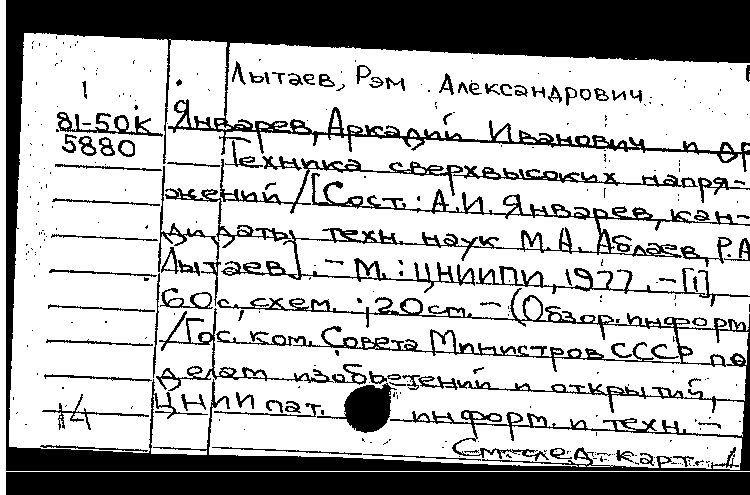 Лытаев, Рэм Александрович
1
81-50К Январев, Аркадий Иванович и др
5880 Техника сверхвысоких напря-
жений / [Сост.: А.И. Январев, кан-
дидаты техн. наук М.А. Аблаев, Р.А
Лытаев]. - М. : ЦНИИПИ, 1977. - [1],
60 с., схем. ; 20 см. - (Обзор. информ
/ Гос. ком. Совета Министров СССР по
делам изобретений и открытий,
14 ЦНИИ пат. информ. и техн. -
См. след. карт.